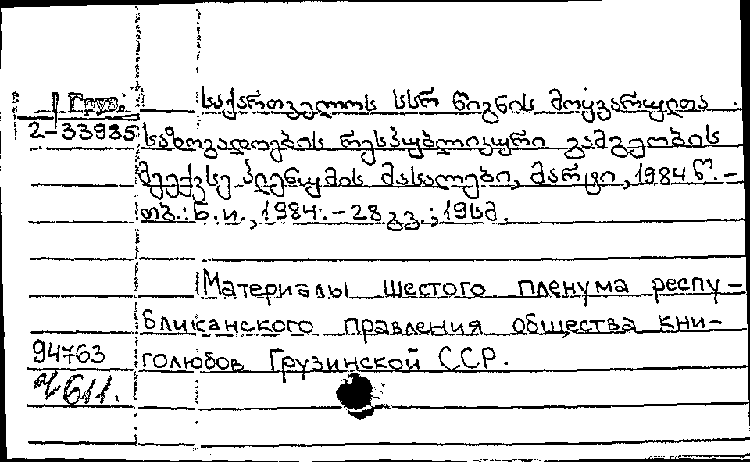 Груз.
2-33935
საქართველოს სსრ წიგნის მოყვარულთა
საზოგადოების რესპუბლიკური გამგეობის
მეექვსე პლენუმის მასალები, მარტი, 1984 წ. -
თბ.: Б.и., 1984. - 28 გვ.; 19სმ.
Материалы шестого пленума респу-
бликанского правления общества кни-
голюбов Грузинской ССР.
94763
№611.